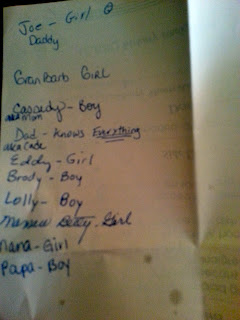 Joe - Girl
Daddy
GranBarb Girl
Cassidy - Boy
aka mom
Dad - Knows Everything
aka Cade
Eddy - Girl
Brody - Boy
Lolly - Boy
Betty - Girl
Nana - Girl
Papa - Boy